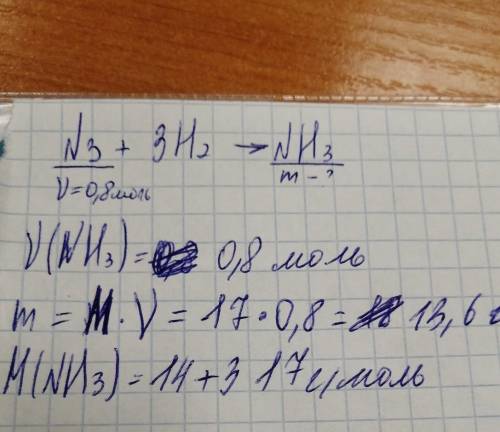 N3 + 3H2 → NH3
ν=0,8моль m - ?
ν(NH3) = 0,8 моль
m = M · ν = 17 · 0,8 = 13,6 г
M(NH3) = 14 + 3 17 г/моль